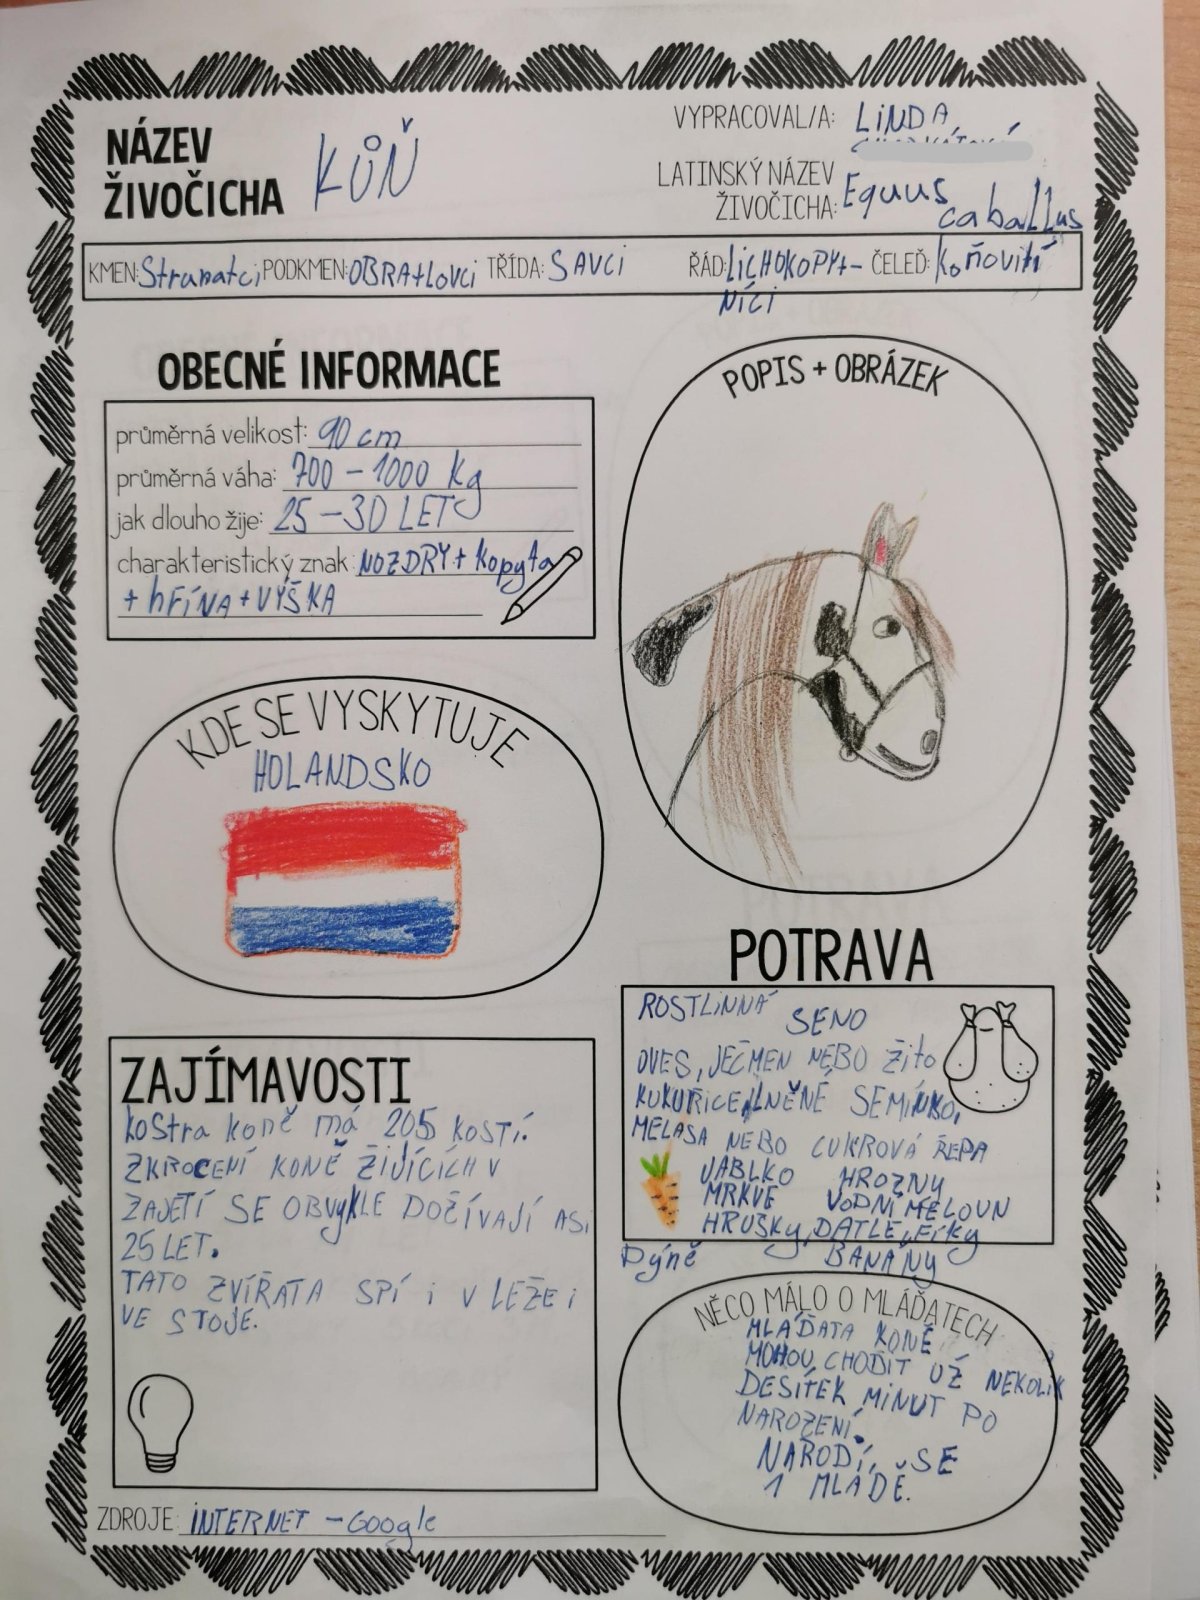 NÁZEV
ŽIVOČICHA
KŮŇ
VYPRACOVAL/A: LINDA
LATINSKÝ NÁZEV
ŽIVOČICHA: Equus
caballus
KMEN: Strunatci PODKMEN: OBRAtLOVCI TŘÍDA: SAVCI ŘÁD: LICHOKOPYt- ČELEĎ: Koňovití
NÍCI
OBECNÉ INFORMACE
průměrná velikost: 90 cm
průměrná váha: 700 - 1000 kg
jak dlouho žije: 25 - 30 LET
charakteristický znak: NOZDRY + kopyta
+ hŘÍNA + VÝŠKA
POPIS + OBRÁZEK
KDE SE VYSKYTUJE
HOLANDSKO
POTRAVA
ROSTLINNÁ
SENO
OVES, JEČMEN NEBO Žito
KUKUŘICE, LNĚNÉ SEMÍNKO,
MELASA NEBO CUKROVÁ ŘEPA
JABLKO HROZNY
MRKVE VODNÍ MELOUN
HRUŠKY, DATLE, Fíky
Dýně BANÁNY
ZAJÍMAVOSTI
kostra koně má 205 kostí.
ZKROCENÍ KONĚ ŽIJÍCÍCH V
ZAJETÍ SE OBVYKLE DOČÍVAJÍ ASI
25 LET.
TATO ZVÍŘATA SPÍ i V LEŽE i
VE STOJE.
NĚCO MÁLO O MLÁĎATECH
MLÁĎATA KONĚ
MOHOU CHODIT UŽ NEKOLIK
DESÍTEK MINUT PO
NAROZENÍ.
NARODÍ SE
1 MLÁDĚ.
ZDROJE: INTERNET - Google